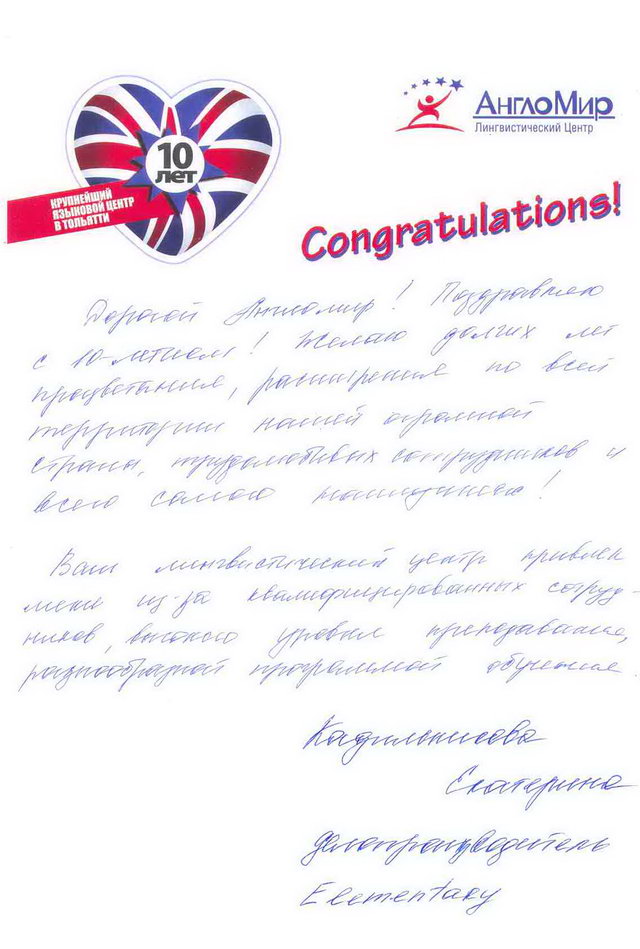 10
ЛЕТ
КРУПНЕЙШИЙ
ЯЗЫКОВОЙ ЦЕНТР
В ТОЛЬЯТТИ
АнглоМир
Лингвистический Центр
Congratulations!
Дорогой Англомир! Поздравляю
с 10-летием! Желаю долгих лет
процветания, расширения по всей
территории нашей огромной
страны, трудолюбивых сотрудников и
всего самого
Ваш лингвистический центр привлек
меня из-за квалифицированных сотруд-
ников, высокого уровня преподавания,
разнообразной программой обучения.
Екатерина
делопроизводитель
Elementary